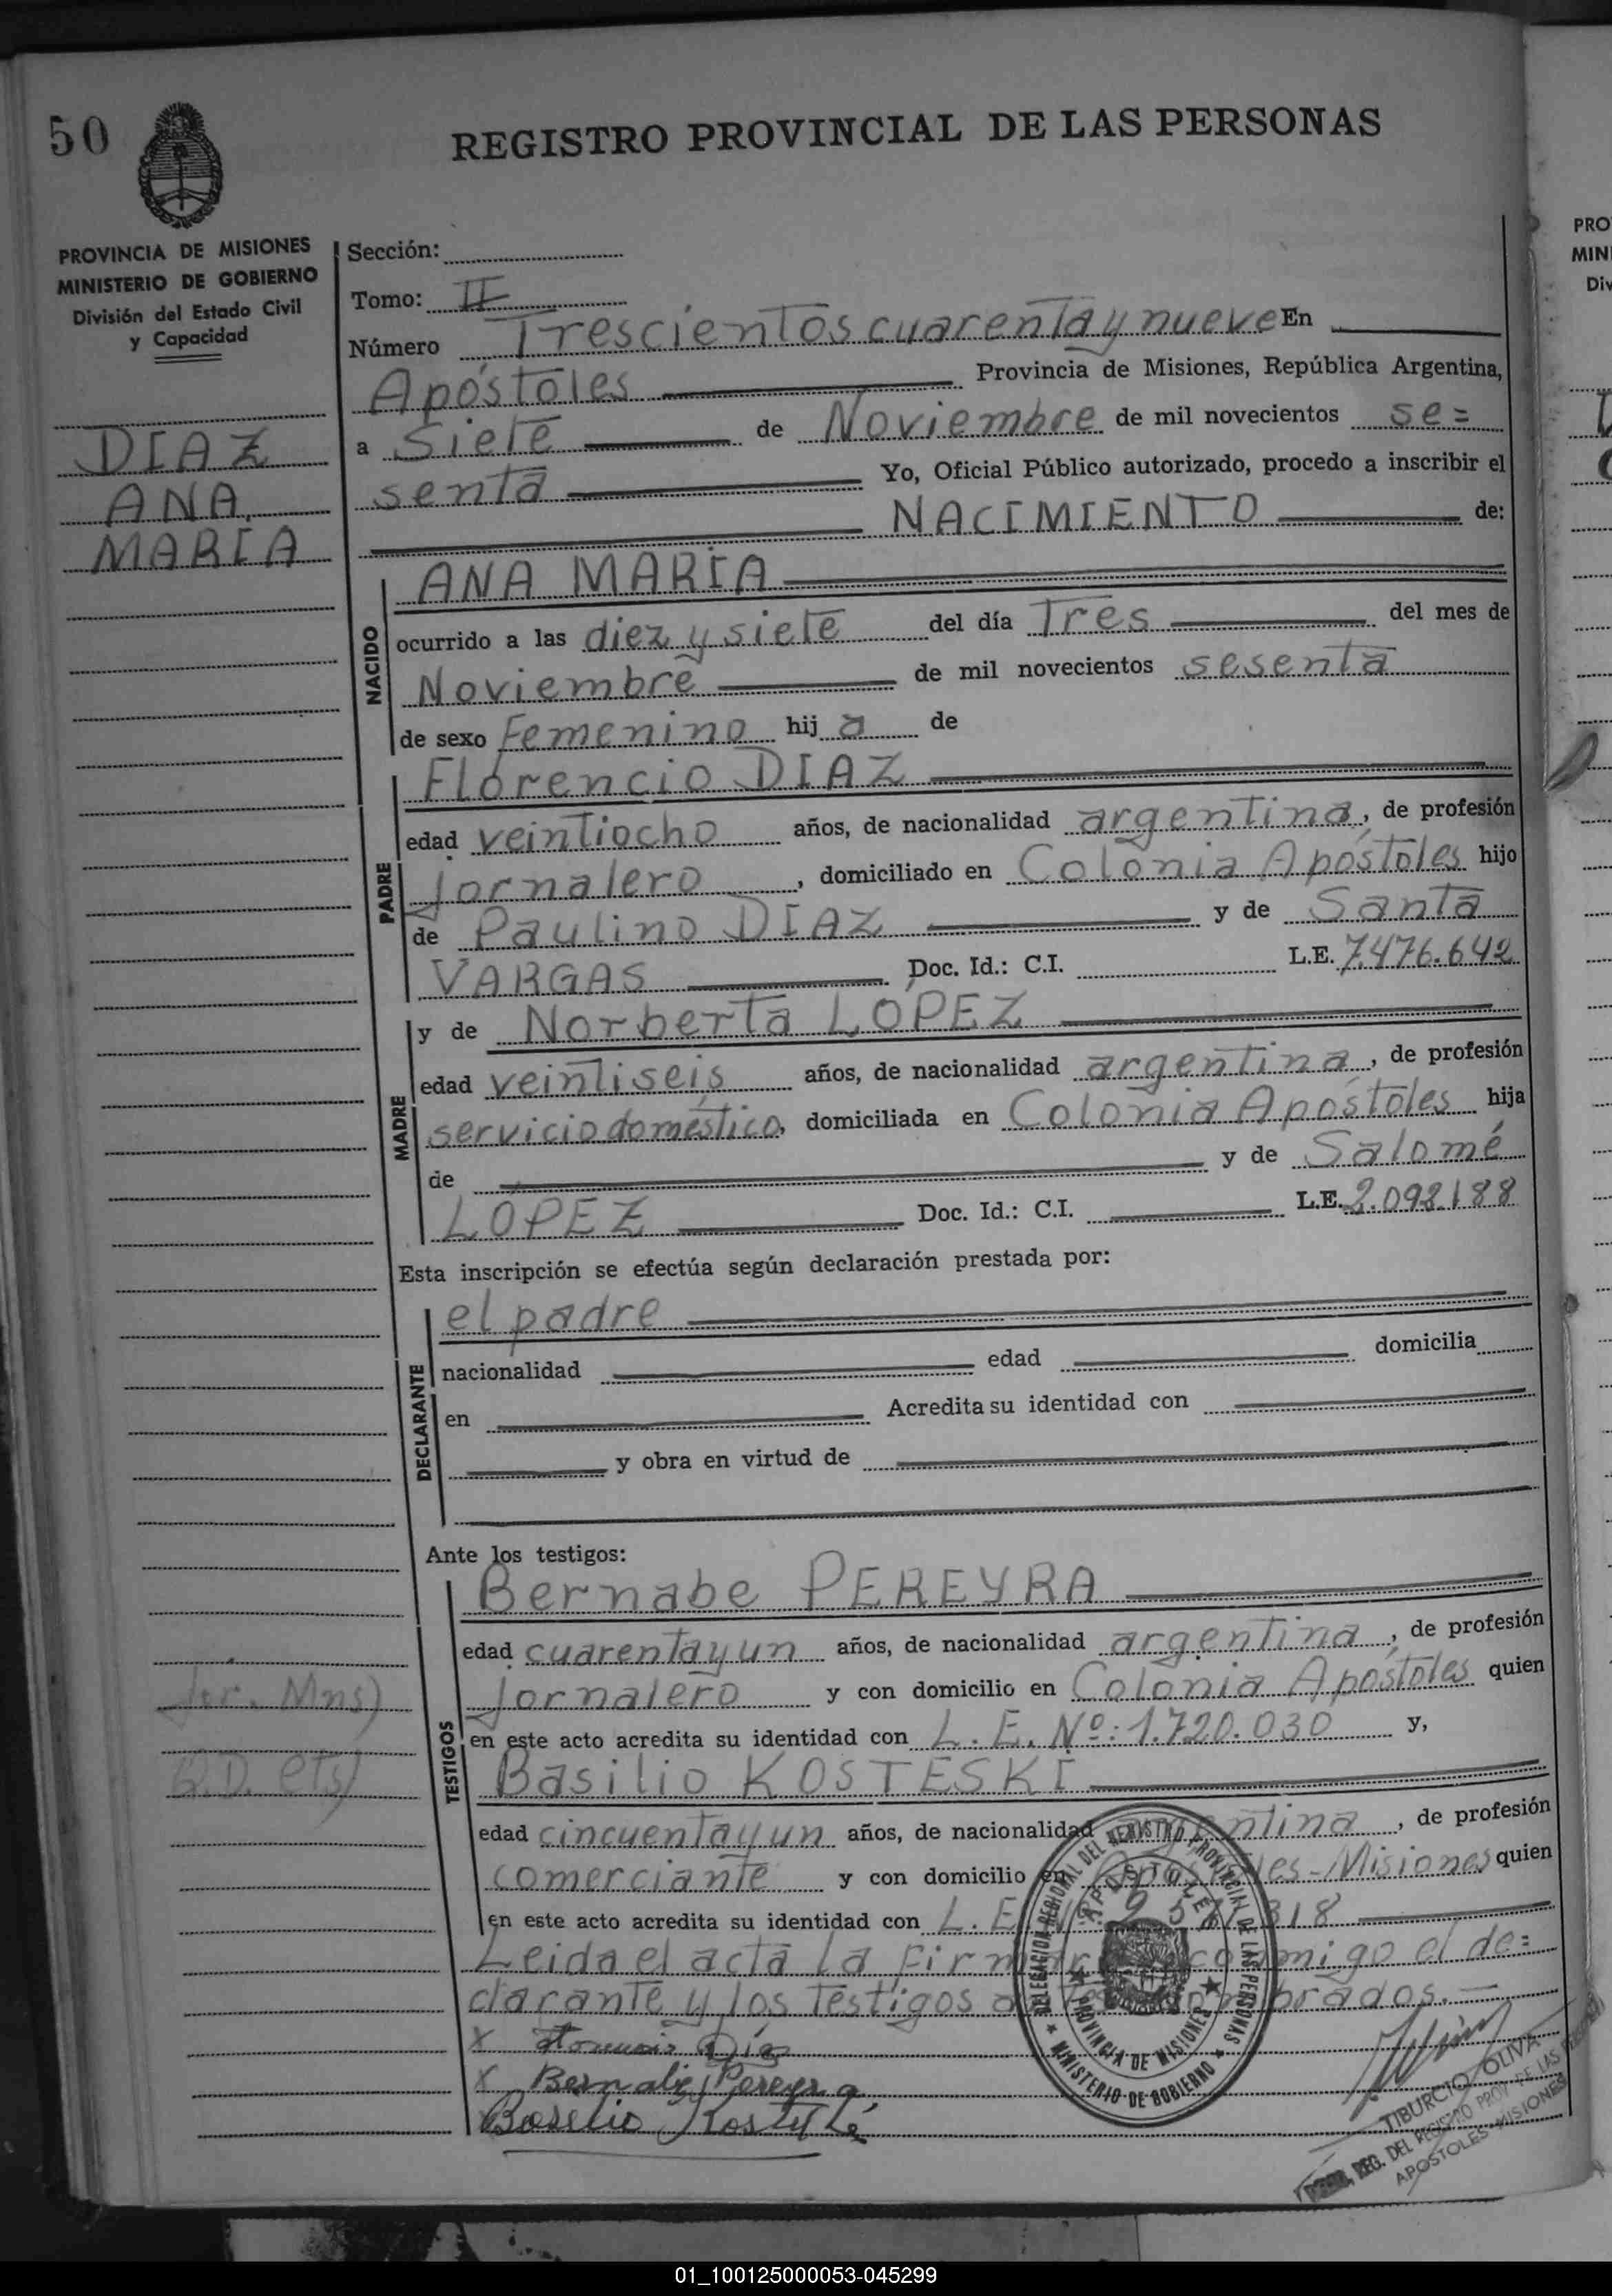 50
REGISTRO PROVINCIAL DE LAS PERSONAS
PROVINCIA DE MISIONES
MINISTERIO DE GOBIERNO
División del Estado Civil
y Capacidad
DIAZ
ANA
MARIA
Sección:
Tomo: II
Número Trescientos cuarenta y nueve En
Apóstoles Provincia de Misiones, República Argentina,
a siete de Noviembre de mil novecientos se=
senta Yo, Oficial Público autorizado, procedo a inscribir el
NACIMIENTO de:
NACIDO
ANA MARIA
ocurrido a las diez y siete del día Tres del mes de
Noviembre de mil novecientos sesenta
de sexo Femenino hij a de
PADRE
Florencio DIAZ
edad veintiocho años, de nacionalidad argentina, de profesión
Jornalero, domiciliado en Colonia Apóstoles hijo
de Paulino DIAZ y de Santa
VARGAS Doc. Id.: C.I. L.E. 7.476.642
MADRE
y de Norberta LOPEZ
edad veintiseis años, de nacionalidad argentina, de profesión
servicio doméstico, domiciliada en Colonia Apóstoles hija
de y de Salomé
LÓPEZ Doc. Id.: C.I. L.E. 2.092.188
Esta inscripción se efectúa según declaración prestada por:
DECLARANTE
el padre
nacionalidad edad domicilia
en Acredita su identidad con
y obra en virtud de
Ante los testigos:
TESTIGOS
Bernabe PEREYRA
edad cuarenta y un años, de nacionalidad argentina, de profesión
Jornalero y con domicilio en Colonia Apóstoles quien
en este acto acredita su identidad con L. E. Nº: 1.720.030 y,
Basilio KOSTESKI
edad cincuenta y un años, de nacionalidad argentina, de profesión
comerciante y con domicilio en Apóstoles-Misiones quien
en este acto acredita su identidad con L. E. 318
Leida el acta la Firman conmigo el de=
clarante y los testigos nombrados.
x Díaz
x Bernabé Pereyra
Basilio
DELEGACION REGIONAL DEL REGISTRO PROVINCIAL DE LAS PERSONAS
APOSTOLES
PROVINCIA DE MISIONES
MINISTERIO DE GOBIERNO
TIBURCIO OLIVA
REG. DEL REGISTRO PROV. DE LAS
APOSTOLES-MISIONES
Mns)
PRO
MINI
Div
01_100125000053-045299